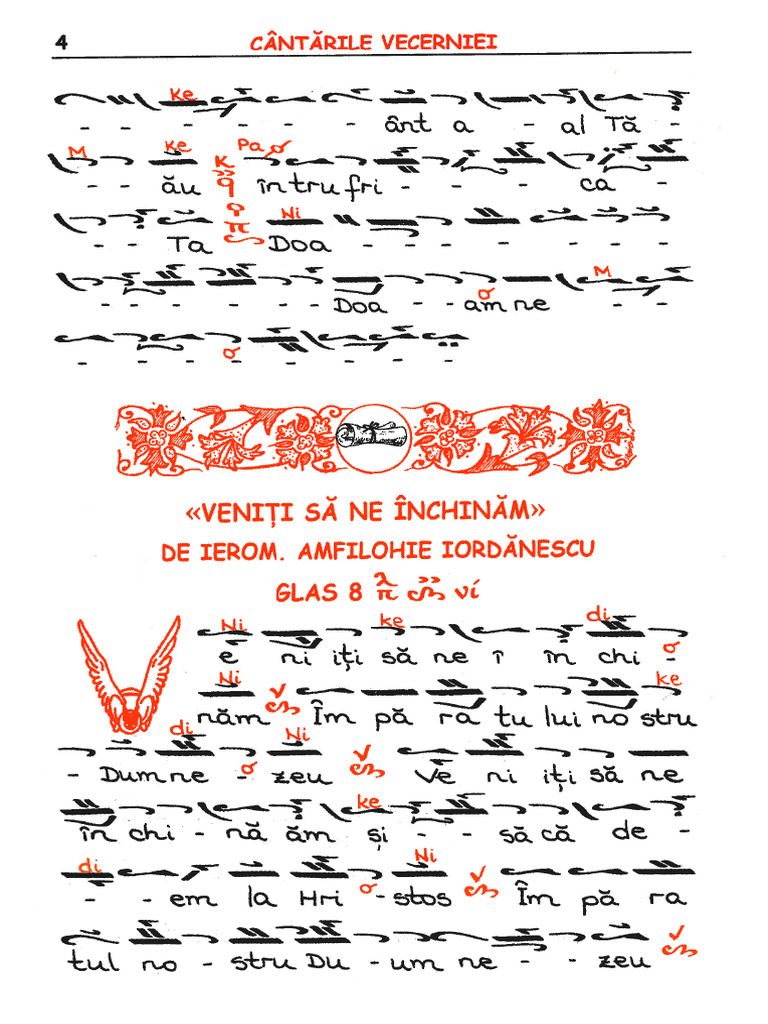 4 CÂNTĂRILE VECERNIEI
Ke
- - - - - - ânt a - al Tă -
M Ke Pa
- - ău întrufri - - - ca -
Ni
- - Ta Doa - - - - - - -
M
- - - - - - Doa - - amne - - -
- - - - - - - -
«VENIȚI SĂ NE ÎNCHINĂM»
DE IEROM. AMFILOHIE IORDĂNESCU
GLAS 8
Ni ke di
V e ni iți să ne î în chi -
Ni ke
năm Îm pă ra tu lui no stru
di Ni
- Dum ne - zeu Ve ni iți să ne
ke
în chi - nă ăm și - - să că de -
di Ni
- - em la Hri - stos Îm pă ra
tul no - stru Du - um ne - - zeu